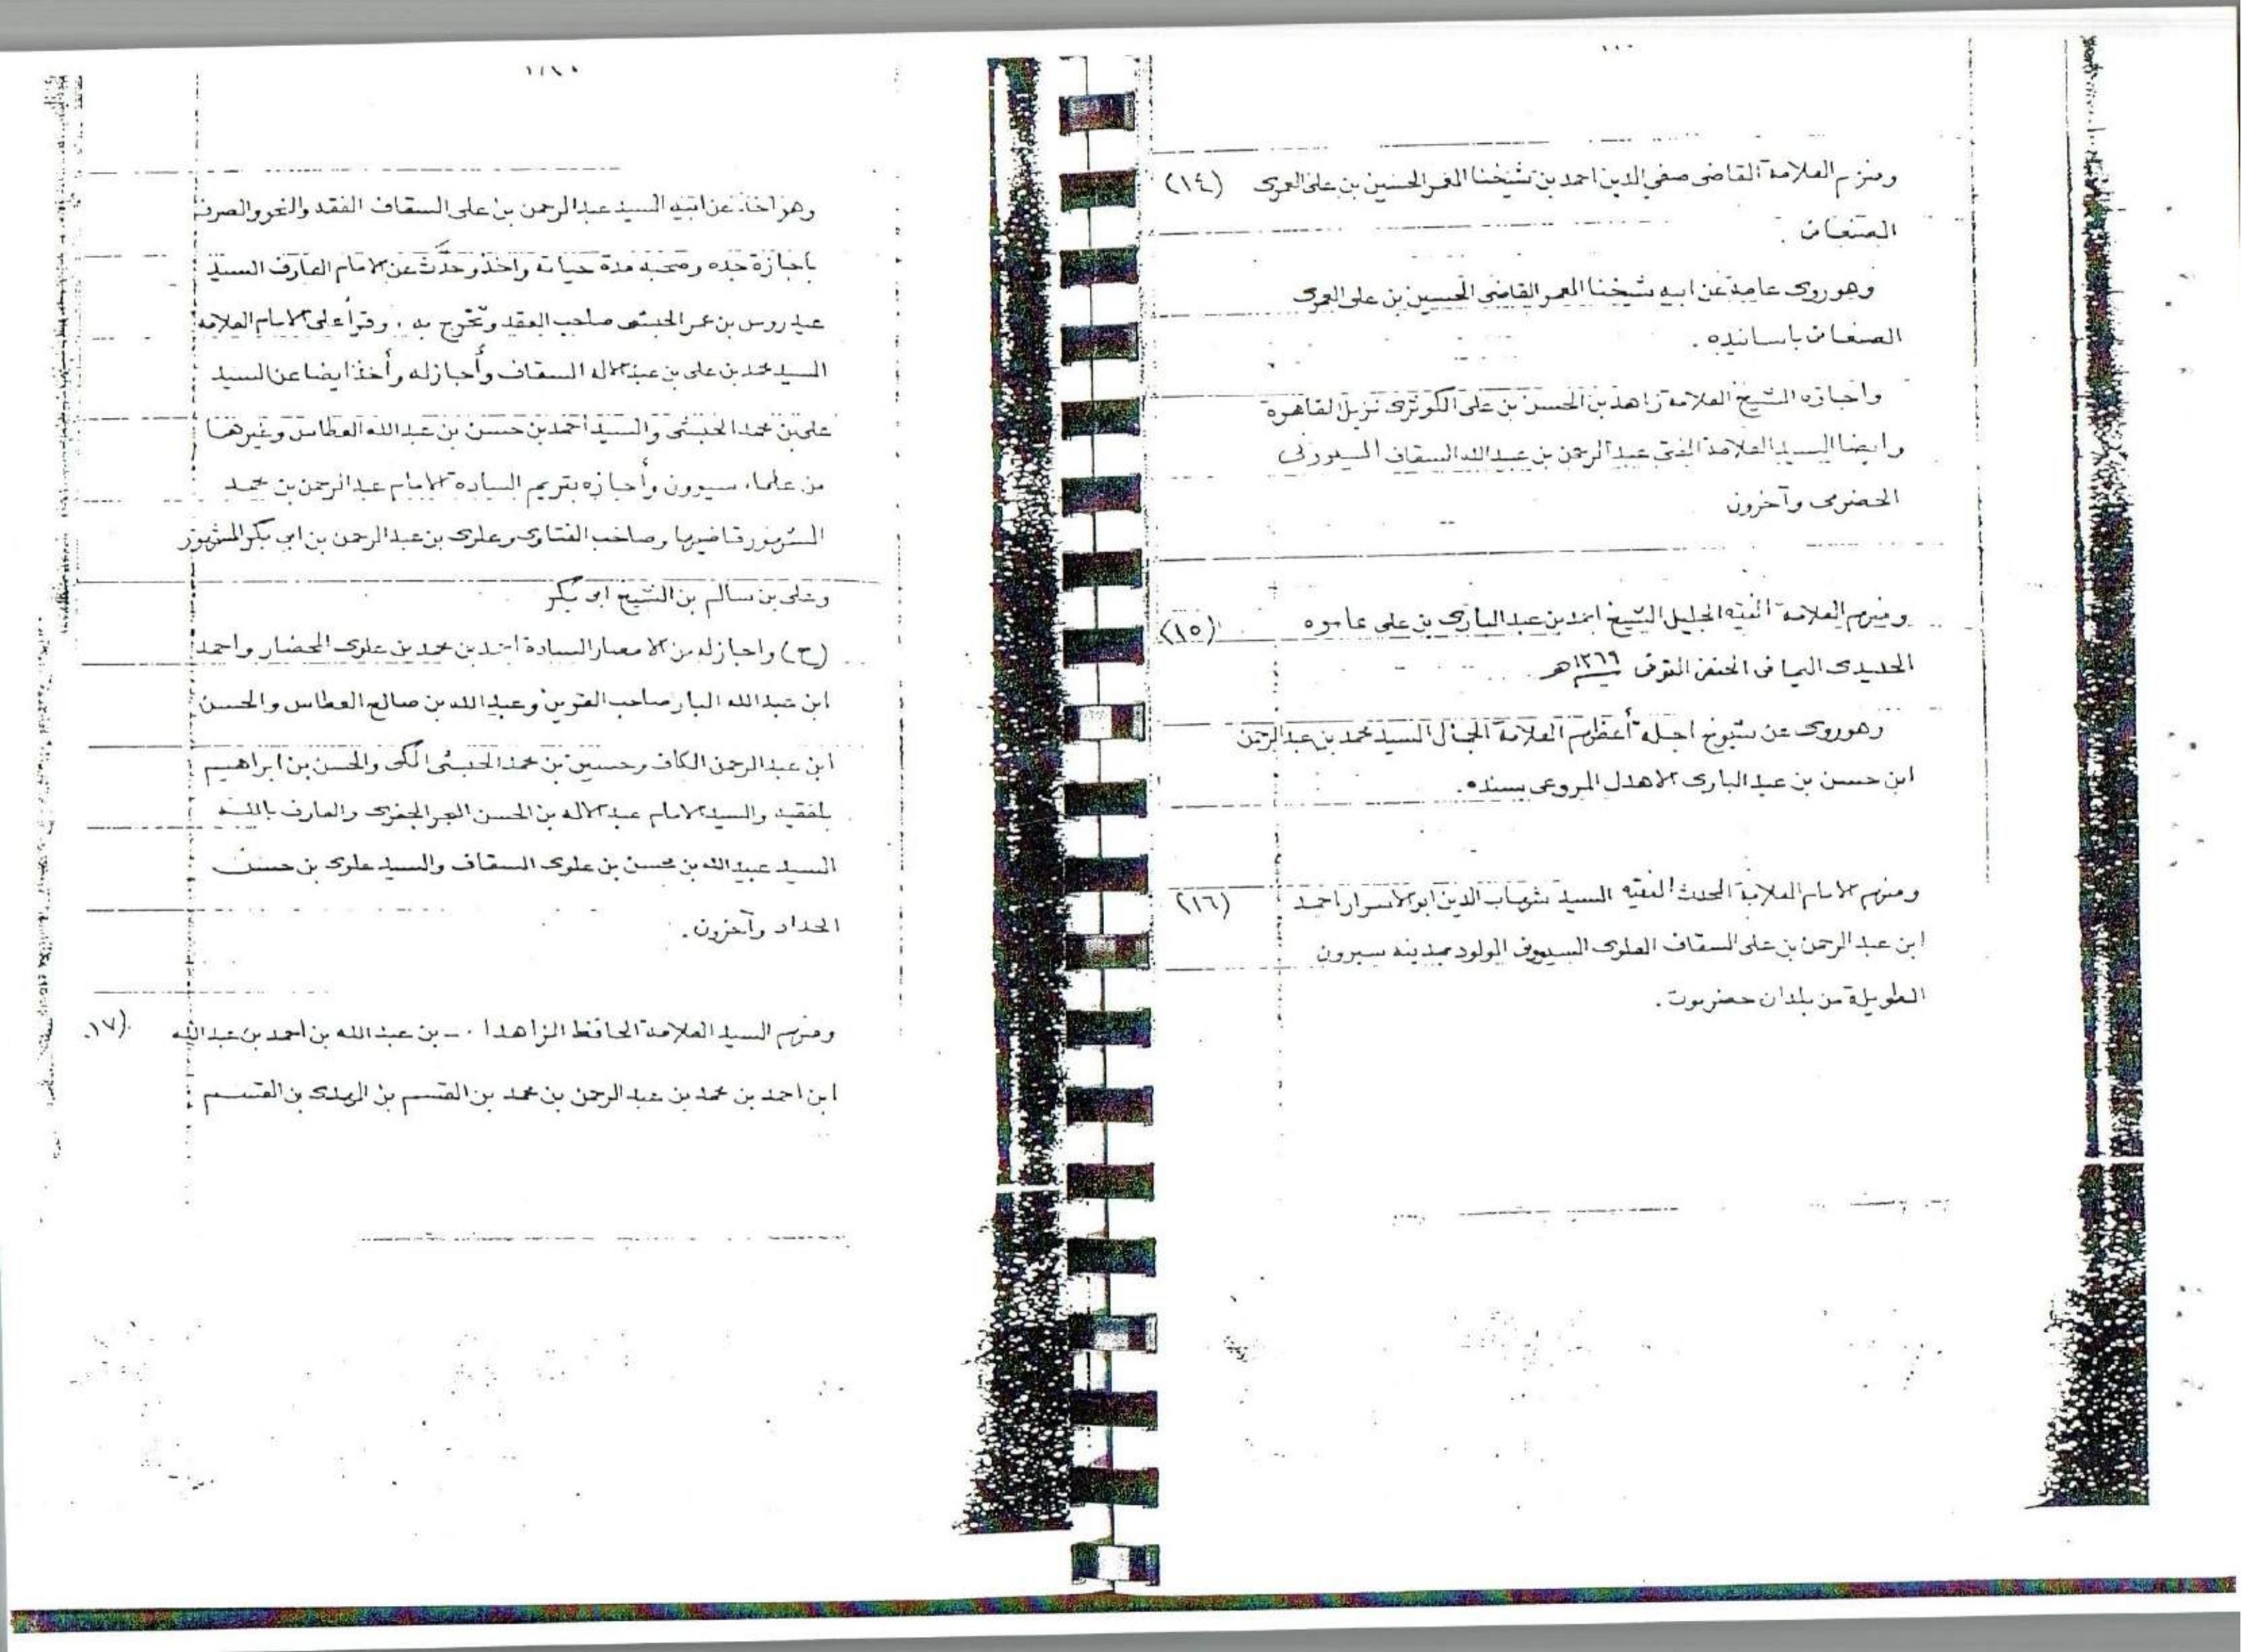 ومنهم العلامة القاضى صفي الدين احمد بن شيخنا المعمر الحسين بن على العمرى (١٤)
الصنعانى .
وهو روى عامة عن ابيه شيخنا المعمر القاضى الحسين بن على العمرى
الصنعانى باسانيده .
واجازه الشيخ العلامة زاهد بن الحسن بن على الكوثرى نزيل القاهرة
وايضا السيد العلامة المفتى عبد الرحمن بن عبيد الله السقاف السيوونى
الحضرمى وآخرون
ومنهم العلامة الفقيه الجليل الشيخ احمد بن عبد البارى بن على عاموه (١٥)
الحديدى اليمانى الحنفى المتوفى ١٣٦٩هـ
وهو روى عن شيوخ اجلة أعظمهم العلامة الجمال السيد محمد بن عبد الرحمن
ابن حسن بن عبد البارى الاهدل المروعى بسنده .
ومنهم الامام العلامة المحدث الفقيه السيد شهاب الدين ابو الاسرار احمد (١٦)
ابن عبد الرحمن بن على السقاف العلوى السيوونى المولود بمدينة سيوون
الطويلة من بلدان حضرموت .
وهو اخذ عن ابيه السيد عبد الرحمن بن على السقاف الفقه والنحو والصرف
باجازة جده وصحبه مدة حياته واخذ وحدَّث عن الامام العارف السيد
عيدروس بن عمر الحبشى صاحب العقد وتخرج به . وقرأ على الامام العلامة
السيد محمد بن على بن عبد الاله السقاف وأجاز له وأخذ ايضا عن السيد
على بن محمد الحبشى والسيد احمد بن حسن بن عبد الله العطاس وغيرهما
من علماء سيوون وأجازه بتريم السادة الامام عبد الرحمن بن محمد
المشهور قاضيها وصاحب الفتاوى وعلوى بن عبد الرحمن بن ابى بكر المشهور
وعلى بن سالم بن الشيخ ابى بكر
(ح) واجاز له من الامصار السادة احمد بن محمد بن علوى المحضار واحمد
ابن عبد الله البار صاحب القرين وعبد الله بن صالح العطاس والحسن
ابن عبد الرحمن الكاف وحسين بن محمد الحبشى المكى والحسن بن ابراهيم
بلفقيه والسيد الامام عبد الاله بن الحسن البحر الجفرى والعارف بالله
السيد عبيد الله بن محسن بن علوى السقاف والسيد علوى بن حسن
الحداد وآخرون .
ومنهم السيد العلامة الحافظ الزاهد بن عبد الله بن احمد بن عبد الله (١٧)
ابن احمد بن محمد بن عبد الرحمن بن محمد بن القسم بن المهدى بن القسم